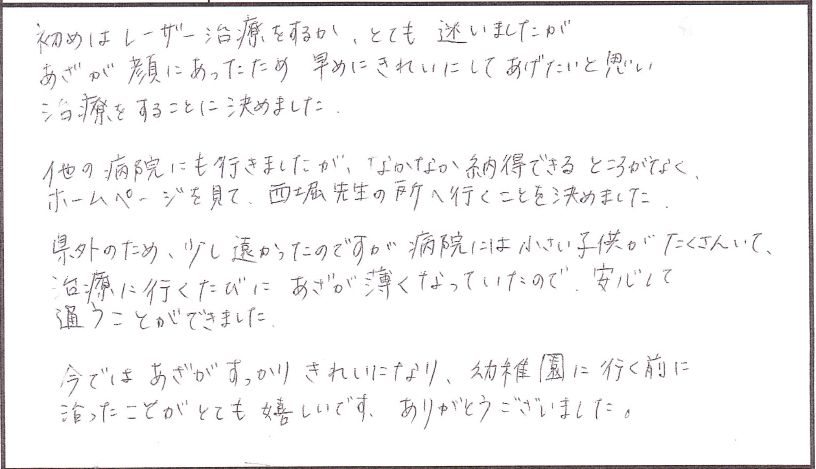 初めはレーザー治療をするか、とても迷いましたが
あざが顔にあったため早めにきれいにしてあげたいと思い
治療をすることに決めました.
他の病院にも行きましたが、なかなか納得できるところがなく、
ホームページを見て、西堀先生の所へ行くことを決めました.
県外のため、少し遠かったのですが病院には小さい子供がたくさんいて、
治療に行くたびにあざが薄くなっていたので、安心して
通うことができました.
今ではあざがすっかりきれいになり、幼稚園に行く前に
治ったことがとても嬉しいです、ありがとうございました。